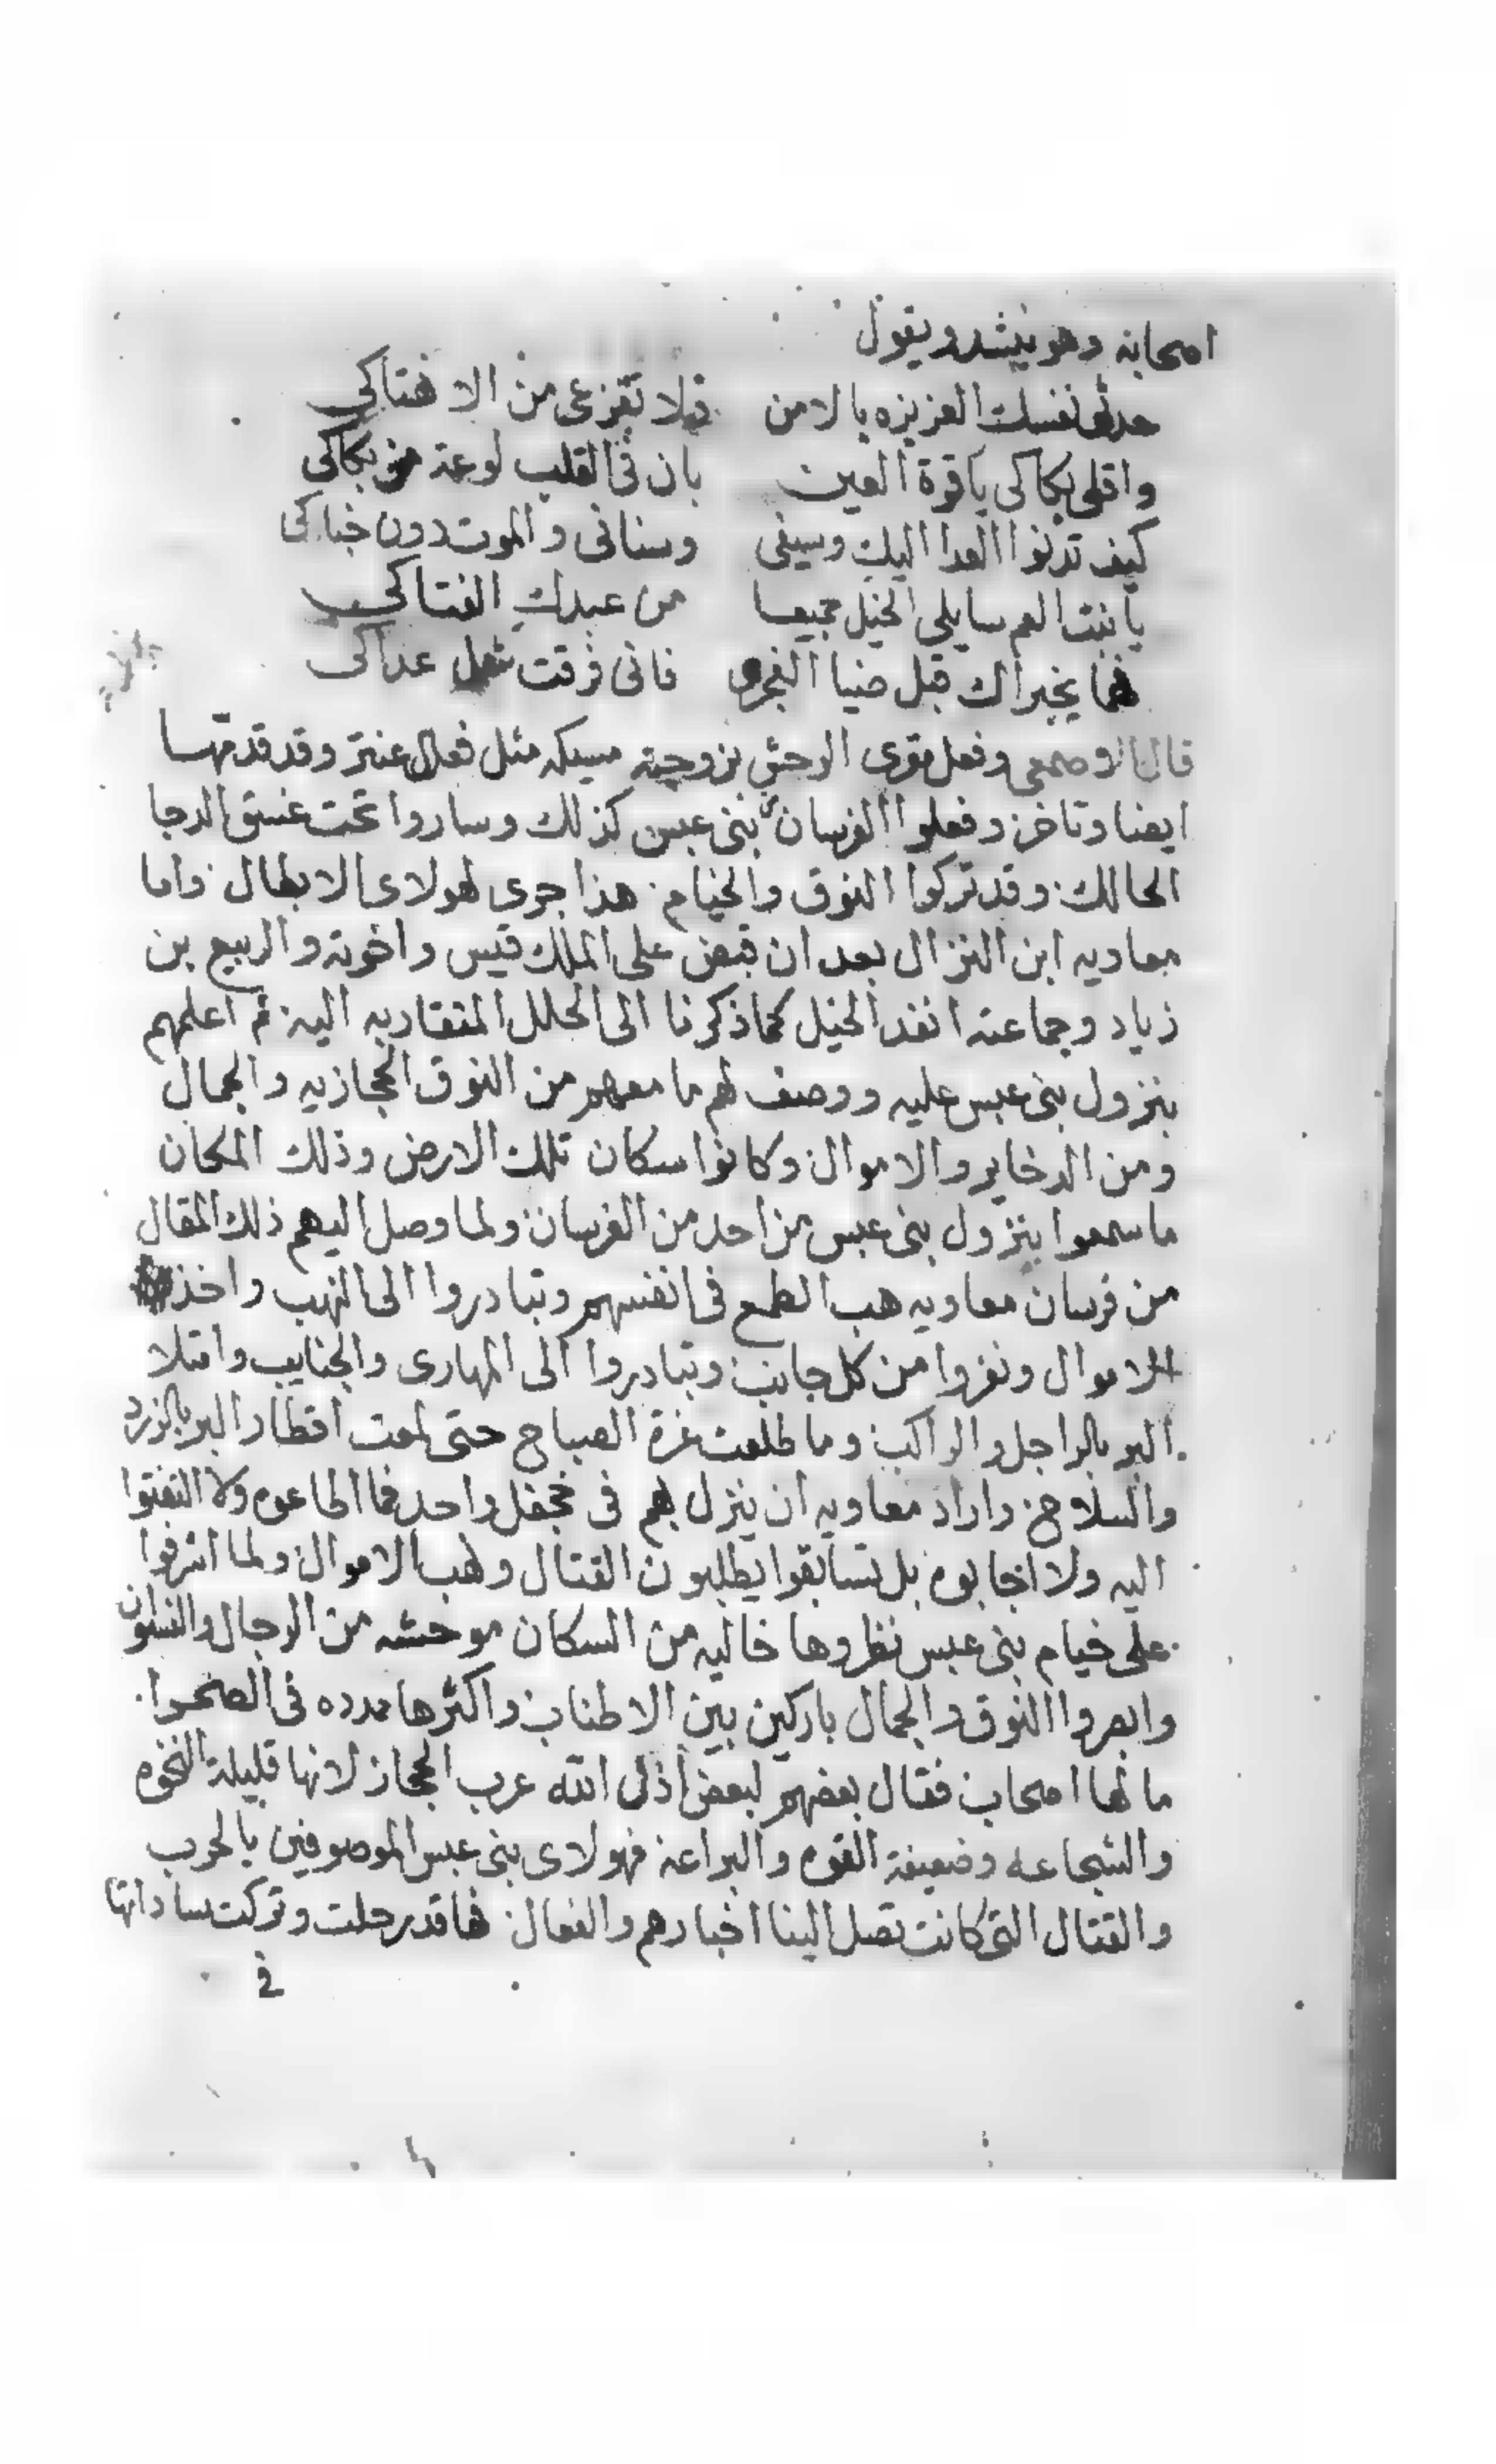 اصحابه وهو ينشد ويقول
حدثى نفسك العزيزه بالامن فلا تفزعى من الاهتاكى
واقلى بكاكى ياقرة العين بان فى القلب لوعة من بكاكى
كيف تدنوا العدا اليك وسيفى وسنانى والموت دون خباكى
يا بنت العم سايلى الخيل جميعا من عبدك الفتاكى
فما يخبراك قبل ضيا الفجر فانى فرقت شمل عداكى
قال الاوصمعى وفعل مقرى الوحش بزوجته مسيكه مثل فعال عنتر وقد قدمها
ايضا وتاخر وفعلوا الفرسان بنى عبس كذلك وساروا تحت غسق الدجا
الحالك وقد تركوا النوق والخيام هذا جرى لهولاى الابطال واما
معاويه ابن النزال بعد ان قبض على الملك قيس واخوته والربيع بن
زياد وجماعته انفد الخيل كما ذكرنا الى الحلل المتقاربه اليه ثم اعلمهم
بنزول بنى عبس عليه ووصف لهم ما معهم من النوق الحجازيه والجمال
ومن الدخاير والاموال وكانوا سكان تلك الارض وذلك المكان
ما سمعوا بنزول بنى عبس من احد من الفرسان ولما وصل اليهم ذلك المقال
من فرسان معاويه هب الطمع فى انفسهم وتبادروا الى النهب واخذ
الاموال ونفروا من كل جانب وتبادروا الى المهارى والجنايب وامتلا
البر بالراجل والراكب وما طلعت غرة الصباح حتى لمعت اقطار البر بالزرد
والسلاح واراد معاويه ان ينزل بهم فى جحفل واحد فما اطاعوه ولا التفتوا
اليه ولا اجابوه بل تسابقوا يطلبون القتال ونهب الاموال ولما اشرفوا
على خيام بنى عبس نظروها خاليه من السكان موحشه من الرجال والنسوان
وابصروا النوق والجمال باركين بين الاطناب واكثرها ممدده فى الصحرا
ما لها اصحاب فقال بعضهم لبعض اذل الله عرب الحجاز لانها قليلة النخوه
والشجاعه وضعيفة القوه والبراعة فهولاى بنى عبس الموصوفين بالحرب
والقتال التى كانت تصل الينا اخبارهم والفعال فها قد رحلت وتركت ساداتها
فى